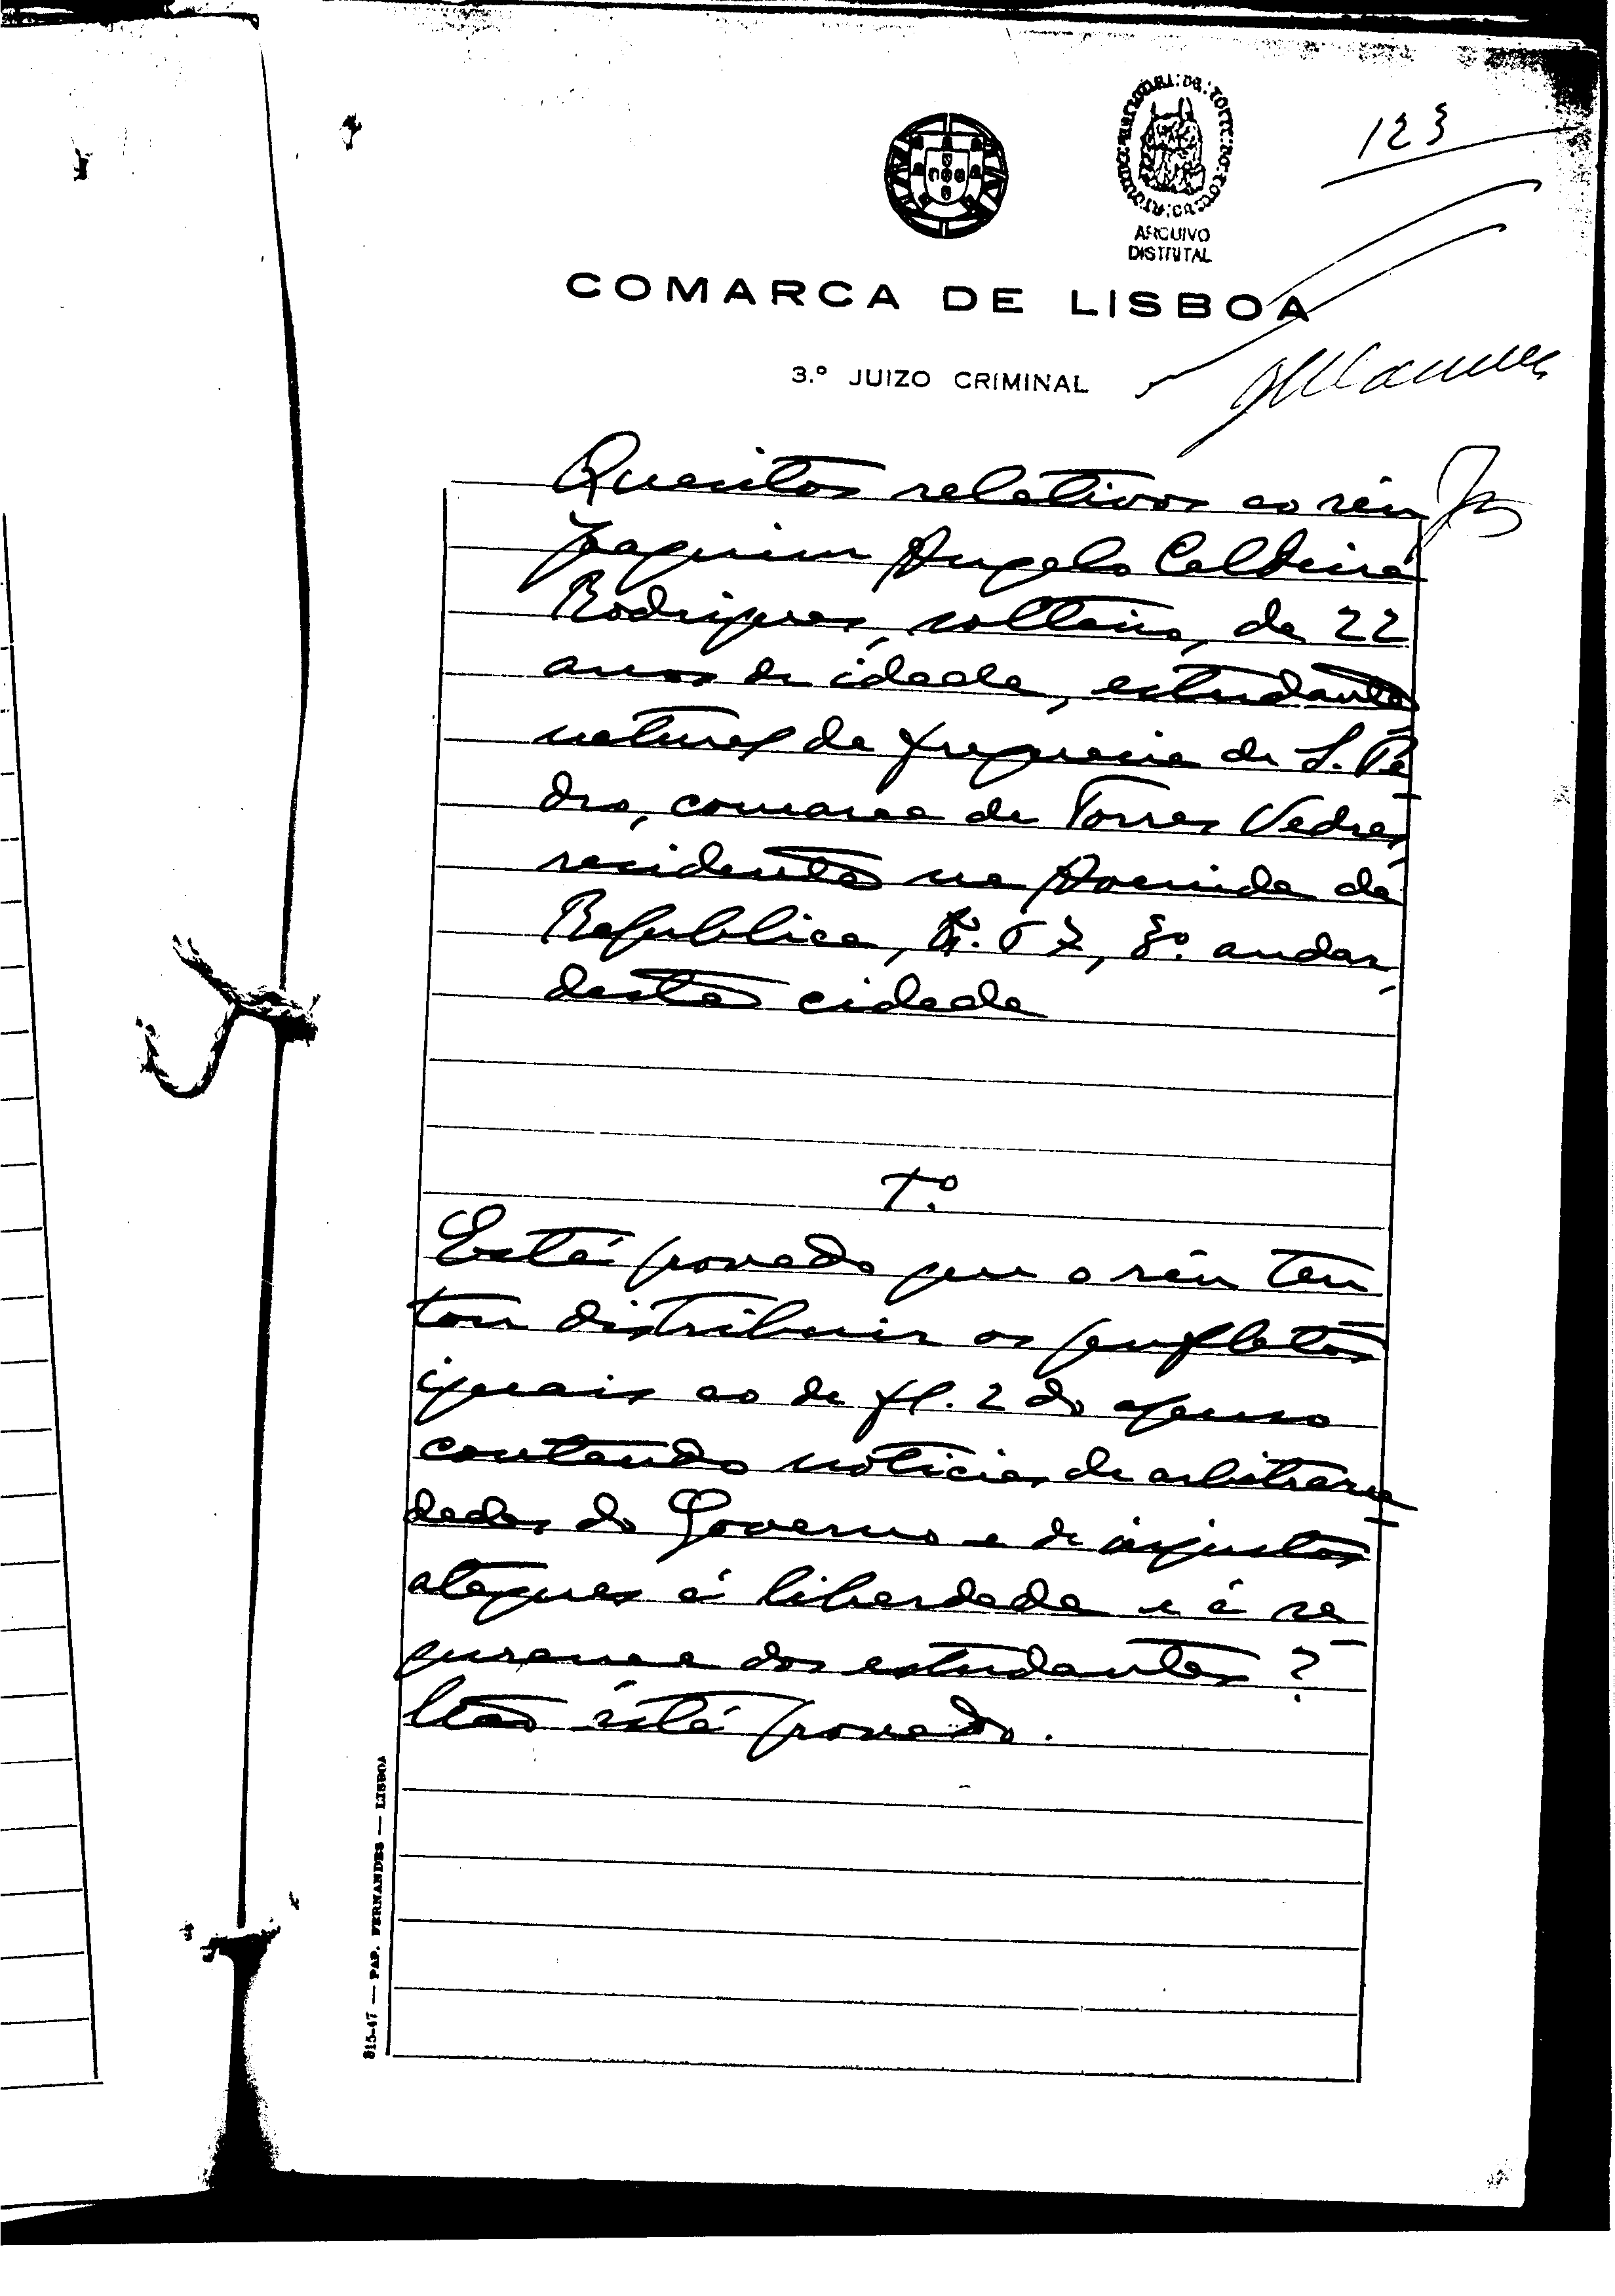 123
ARQUIVO
DISTRITAL
COMARCA DE LISBOA
3.º JUIZO CRIMINAL
Quesitos relativos ao réu
Joaquim Angelo Caldeira
Rodrigues, solteiro, de 22
anos de idade, estudante
natural da freguesia de S. Pe
dro, comarca de Torres Vedras
residente na Avenida da
Republica, 3º. andar,
desta cidade
1.º
Está provado que o réu ten
tou distribuir os panfletos
iguais ao de fl. 2 do apenso
contendo noticias de arbitrarie
dades do Governo e de injustos
ataques á liberdade e á se
gurança dos estudantes?
Não está provado.
815-47 — PAP. FERNANDES — LISBOA